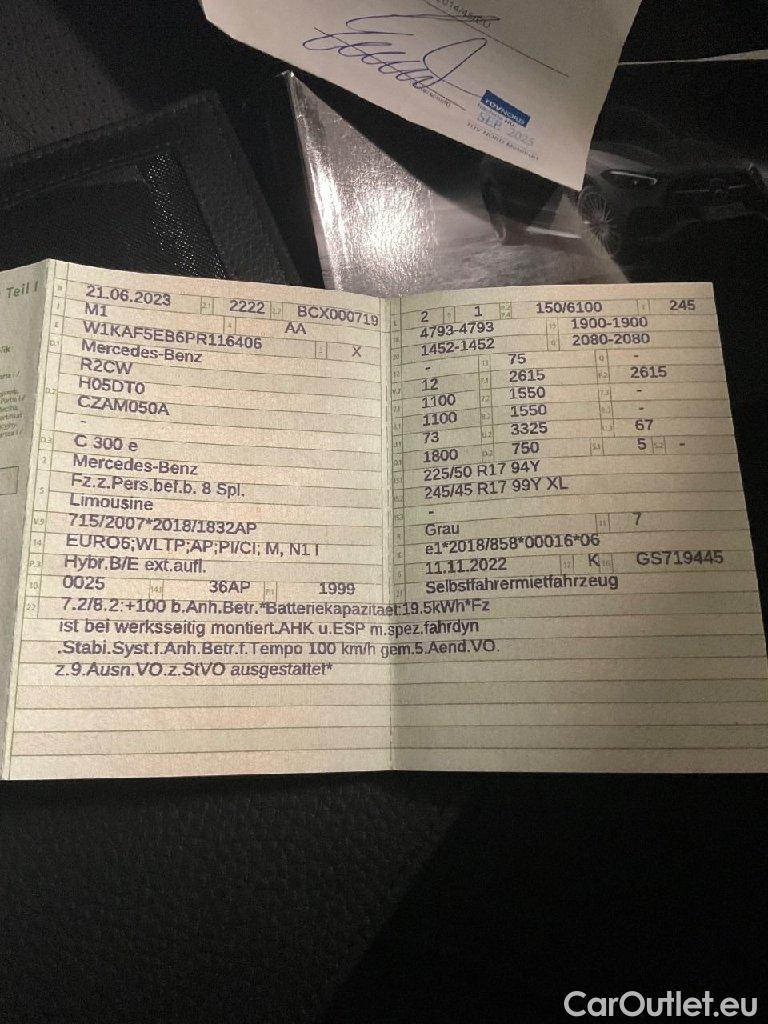 TÜV NORD
SEP. 2025
Teil I
21.06.2023 2222 BCX000719
M1 AA
W1KAF5EB6PR116406 X
Mercedes-Benz
R2CW
H05DT0
CZAM050A
-
C 300 e
Mercedes-Benz
Fz.z.Pers.bef.b. 8 Spl.
Limousine
715/2007*2018/1832AP
EURO6;WLTP;AP;PI/CI; M, N1 I
Hybr.B/E ext.aufl.
0025 36AP 1999
2 1 150/6100 245
4793-4793 1900-1900
1452-1452 2080-2080
- 75 -
12 2615 2615
1100 1550 -
1100 1550 -
73 3325 67
1800 750 5 -
225/50 R17 94Y
245/45 R17 99Y XL
-
Grau 7
e1*2018/858*00016*06
11.11.2022 K GS719445
Selbstfahrermietfahrzeug
7.2/8.2:+100 b.Anh.Betr.*Batteriekapazitaet:19.5kWh*Fz
ist bei werksseitig montiert.AHK u.ESP m.spez.fahrdyn
.Stabi.Syst.f.Anh.Betr.f.Tempo 100 km/h gem.5.Aend.VO.
z.9.Ausn.VO.z.StVO ausgestattet*
CarOutlet.eu